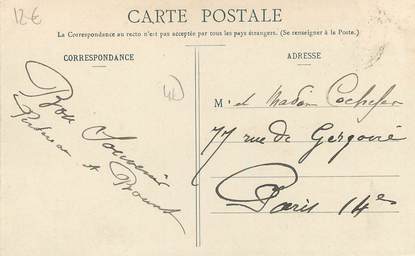 12€
CARTE POSTALE
La Correspondance au recto n'est pas acceptée par tous les pays étrangers. (Se renseigner à la Poste.)
CORRESPONDANCE
ADRESSE
Bon Souvenir
M et Madame
77 rue de Gergovie
Paris 14e